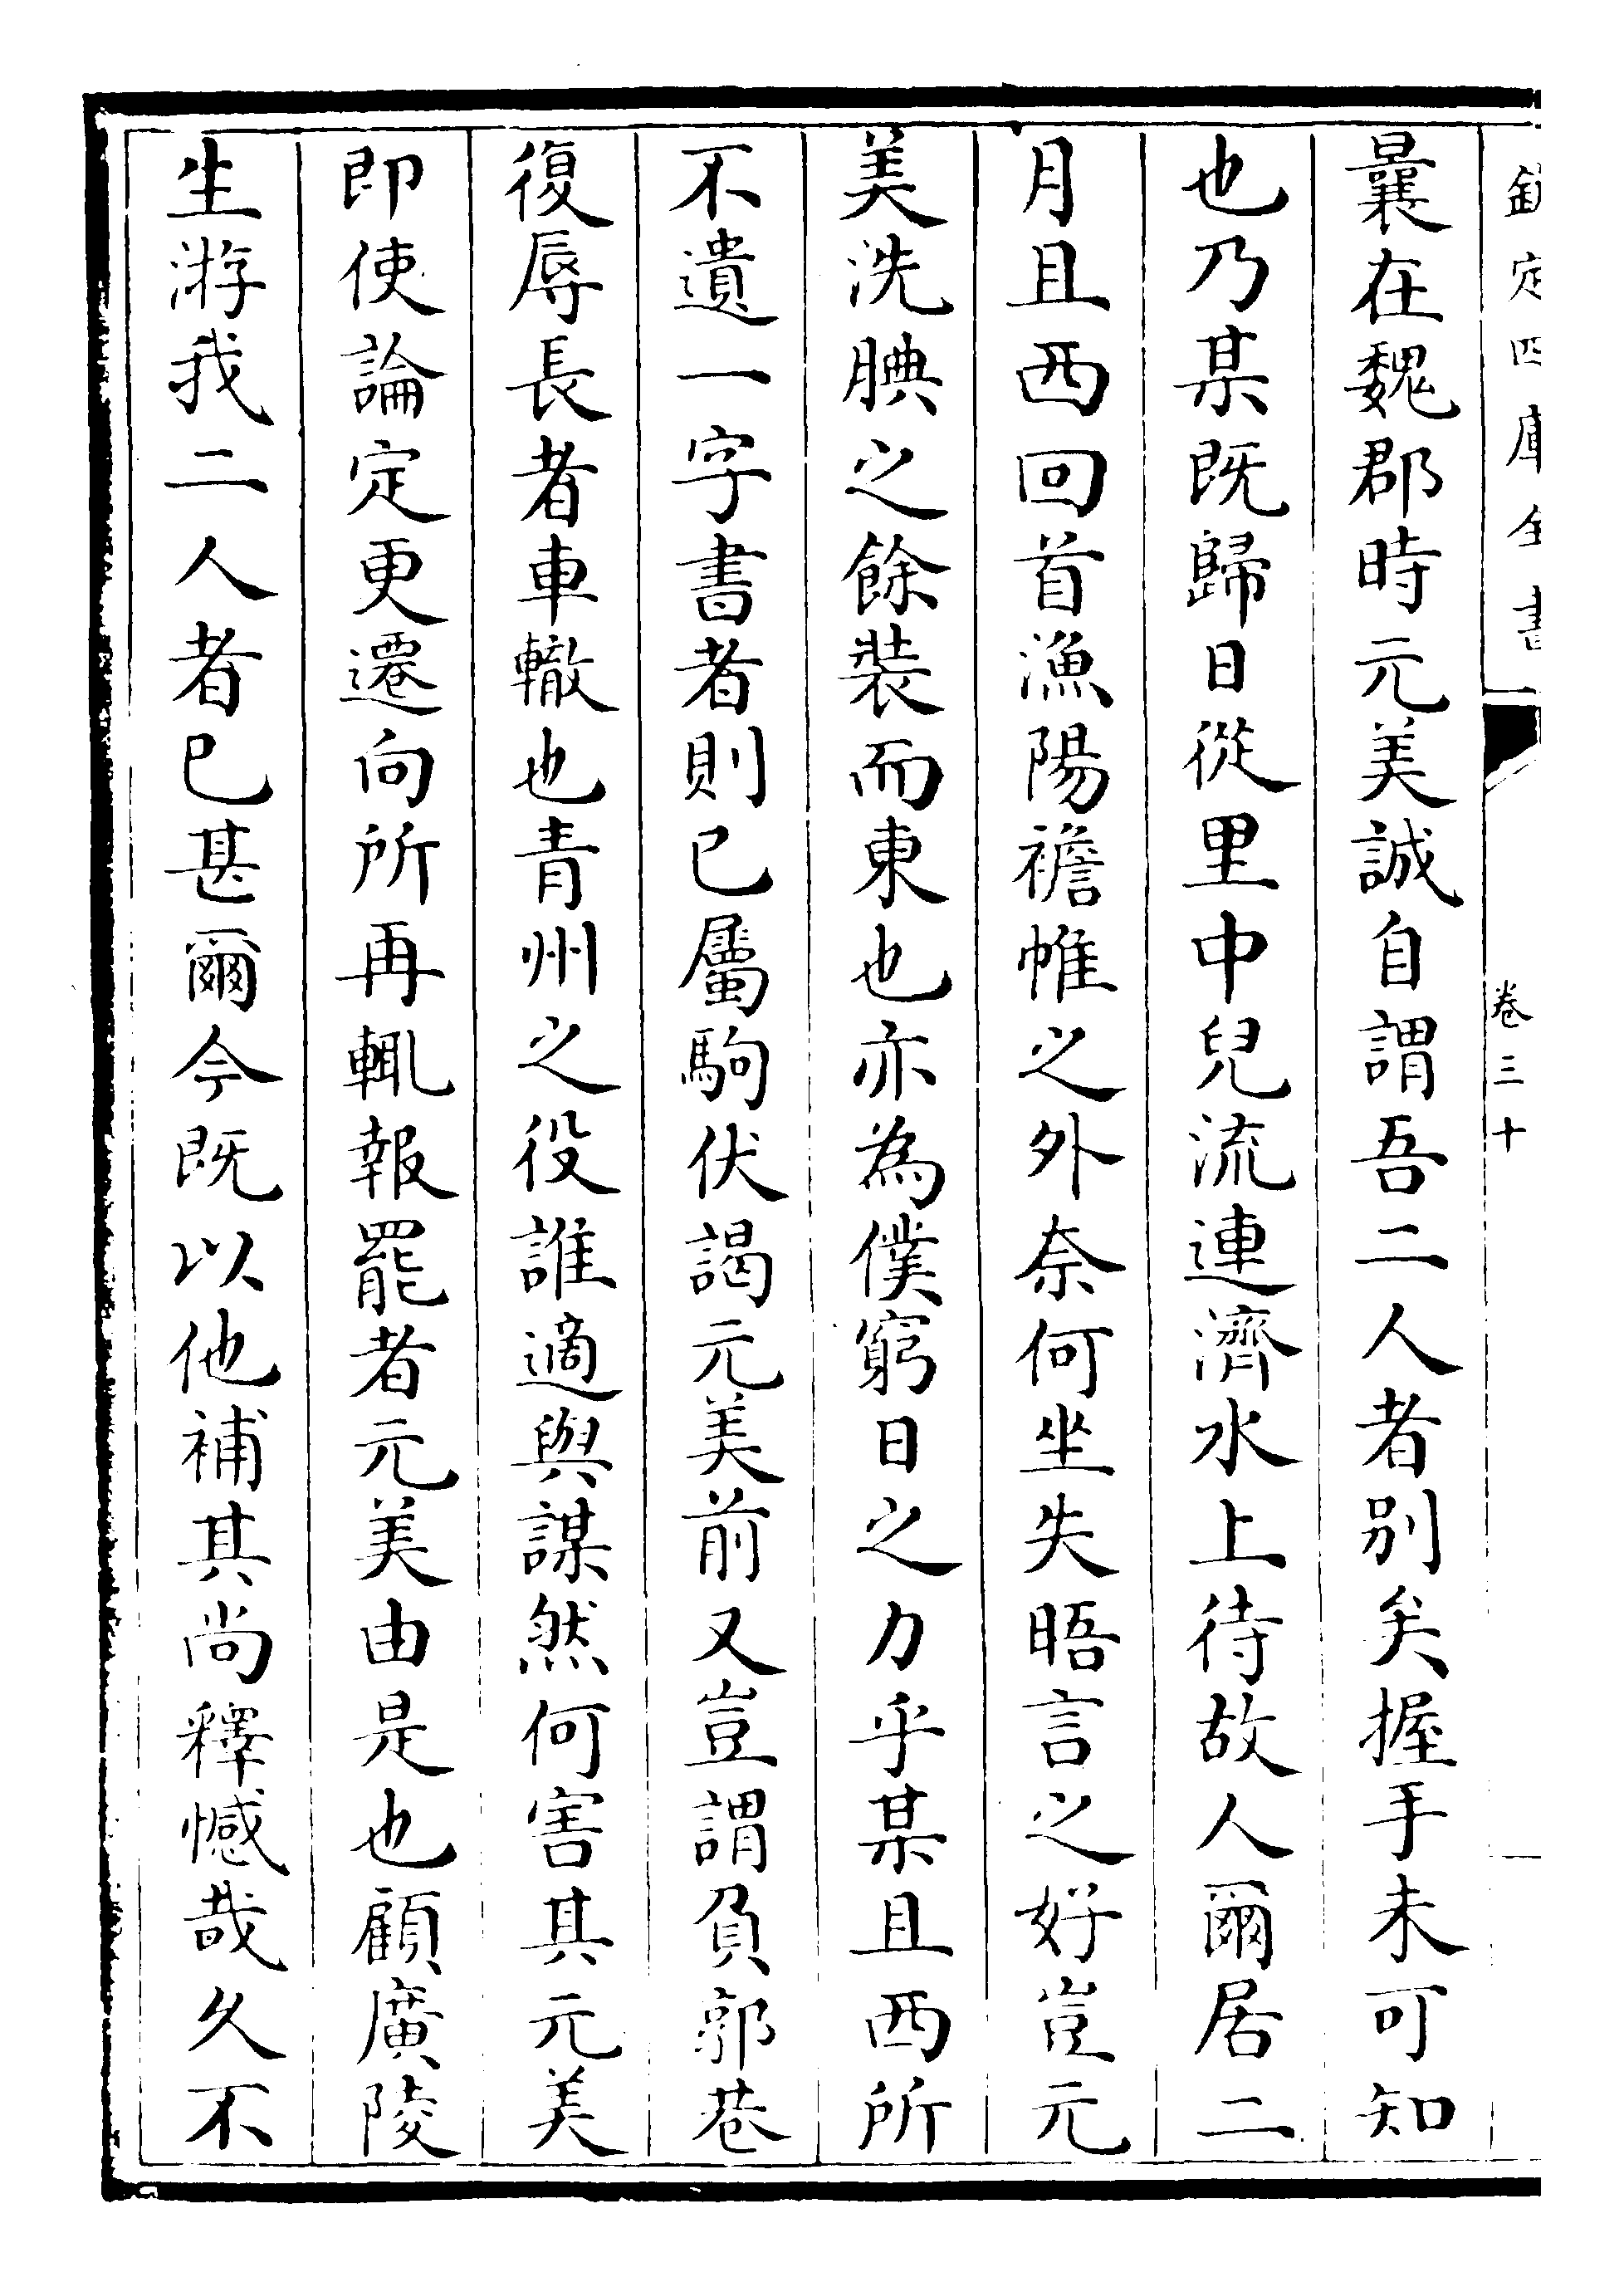 欽定四庫全書
卷三十
曩在魏郡時元美誠自謂吾二人者别矣握手未可知
也乃某既歸日從里中兒流連濟水上待故人爾居二
月且西回首漁陽襜帷之外奈何坐失晤言之好豈元
美洗腆之餘裝而東也亦為僕窮日之力乎某且西所
不遺一字書者則已屬駒伏謁元美前又豈謂負郭巷
復辱長者車轍也青州之役誰適與謀然何害其元美
即使論定更遷向所再輒報罷者元美由是也顧廣陵
生游我二人者已甚爾今既以他補其尚釋憾哉久不